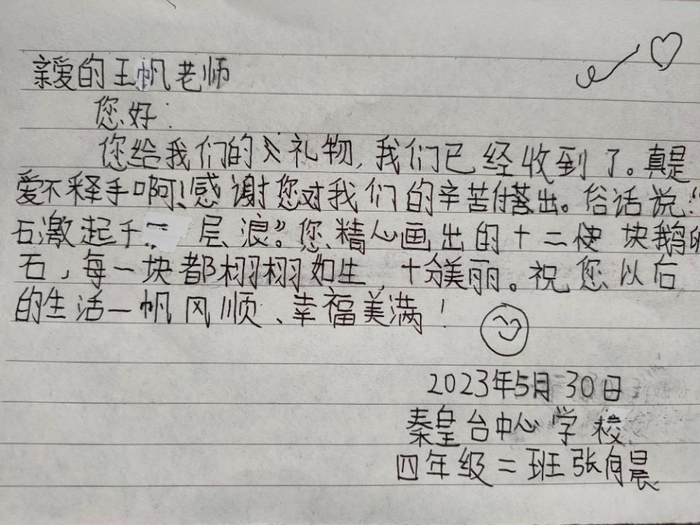 亲爱的王帆老师
您好:
您给我们的礼物,我们已经收到了。真是
爱不释手啊!感谢您对我们的辛苦付出。俗话说:“
石激起千层浪。”您精心画出的十二块鹅的
石,每一块都栩栩如生,十分美丽。祝您以后
的生活一帆风顺、幸福美满!
2023年5月30日
秦皇台中心学校
四年级二班张向晨